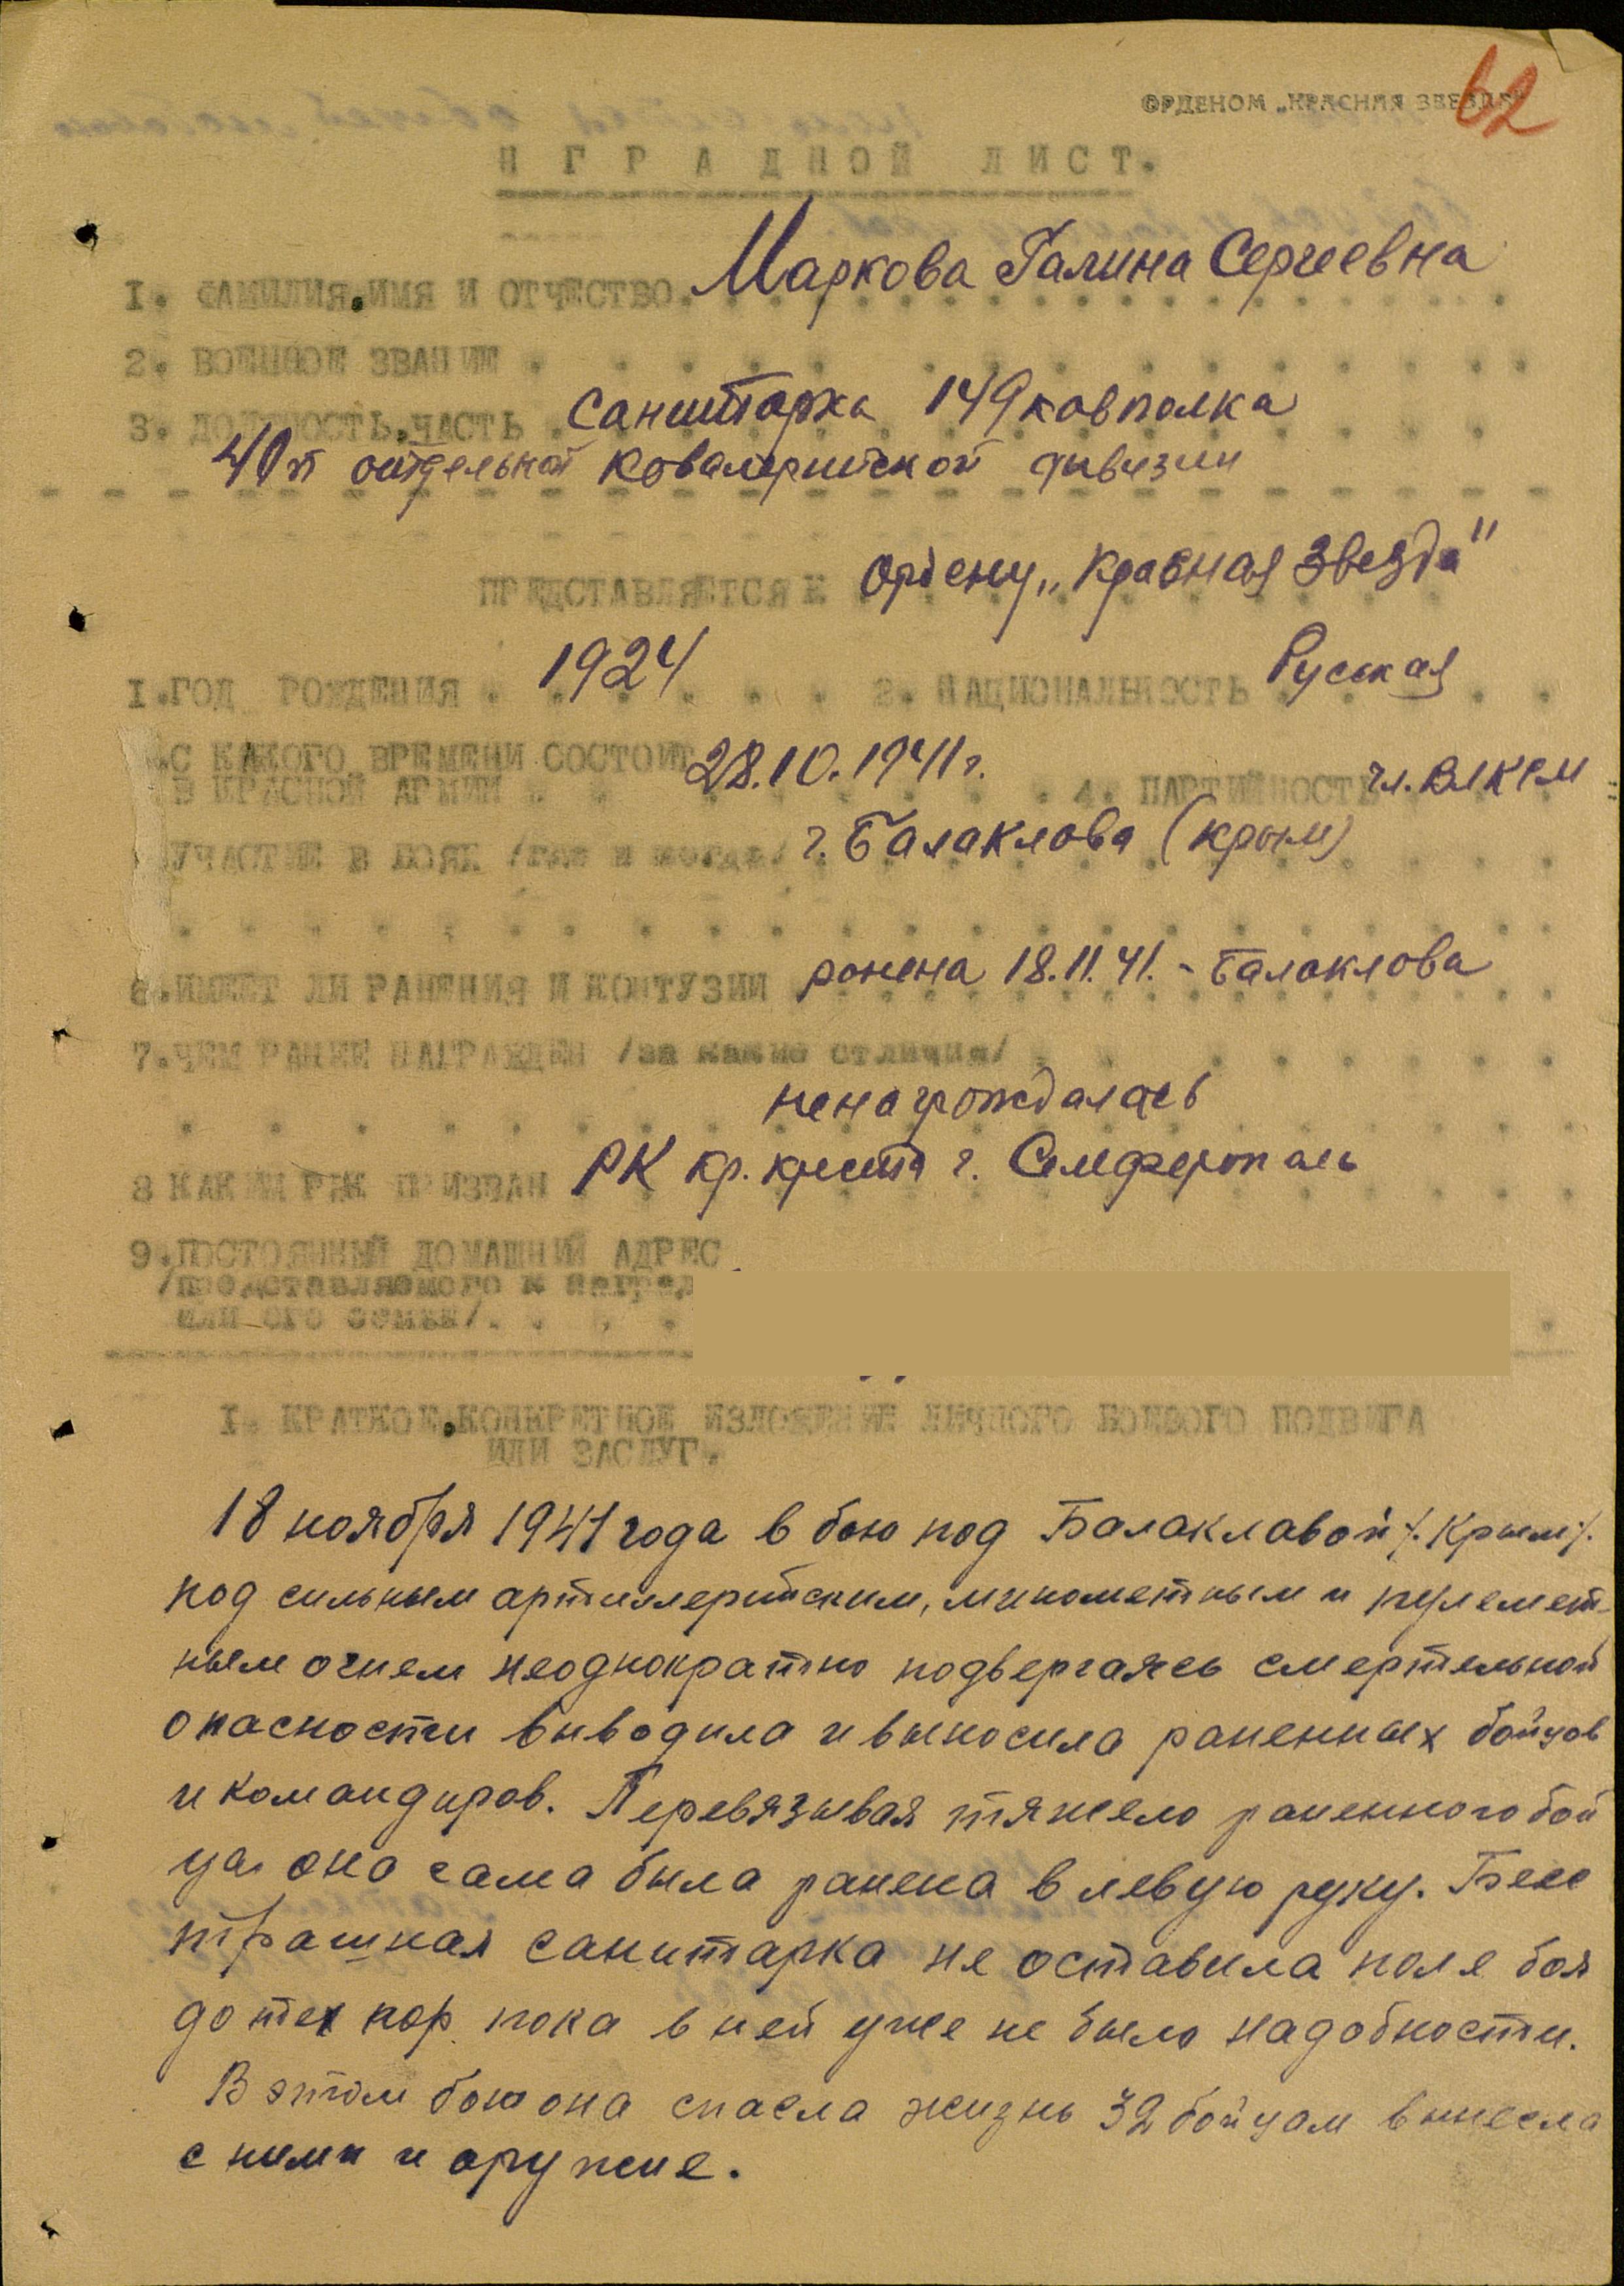 62
ОРДЕНОМ „КРАСНАЯ ЗВЕЗДА"
Н Г Р А Д Н О Й ЛИСТ.
1. ФАМИЛИЯ,ИМЯ И ОТЧЕСТВО. Маркова Галина Сергеевна
2. ВОЕННОЕ ЗВАНИЕ
3. ДОЛЖНОСТЬ,ЧАСТЬ Санитарка 149 кавполка
40й отдельной кавалерийской дивизии
ПРЕДСТАВЛЯЕТСЯ К Ордену „Красная Звезда"
I.ГОД РОЖДЕНИЯ 1924 2. НАЦИОНАЛЬНОСТЬ Руская
С КАКОГО ВРЕМЕНИ СОСТОИТ 28.10.1941г.
В КРАСНОЙ АРМИИ 4. ПАРТИЙНОСТЬ чл.ВЛКСМ
УЧАСТИЕ В БОЯХ /где и когда/ г. Балаклава (Крым)
6.ИМЕЕТ ЛИ РАНЕНИЯ И КОНТУЗИИ ранена 18.11.41. - Балаклава
7.ЧЕМ РАНЕЕ НАГРАЖДЕН /за какие отличия/
ненаграждалась
8 КАКИМ РВК ПРИЗВАН РК кр. креста г. Симферополь
9.ПОСТОЯННЫЙ ДОМАШНИЙ АДРЕС
/представляемого к наград
или его семьи/.
I. КРАТКОЕ,КОНКРЕТНОЕ ИЗЛОЖЕНИЕ ЛИЧНОГО БОЕВОГО ПОДВИГА
ИЛИ ЗАСЛУГ.
18 ноября 1941 года в бою под Балаклавой /. Крым/.
под сильным артиллерийским, минометным и пулемет-
ным огнем неоднократно подвергаясь смертельной
опасности выводила и выносила раненных бойцов
и командиров. Перевязывая тяжело раненного бой
ца она сама была ранена в левую руку. Бесс
трашная санитарка не оставила поле боя
до тех пор пока в ней уже не было надобности.
В этом бою она спасла жизнь 32 бойцам вынесла
с ними и оружие.